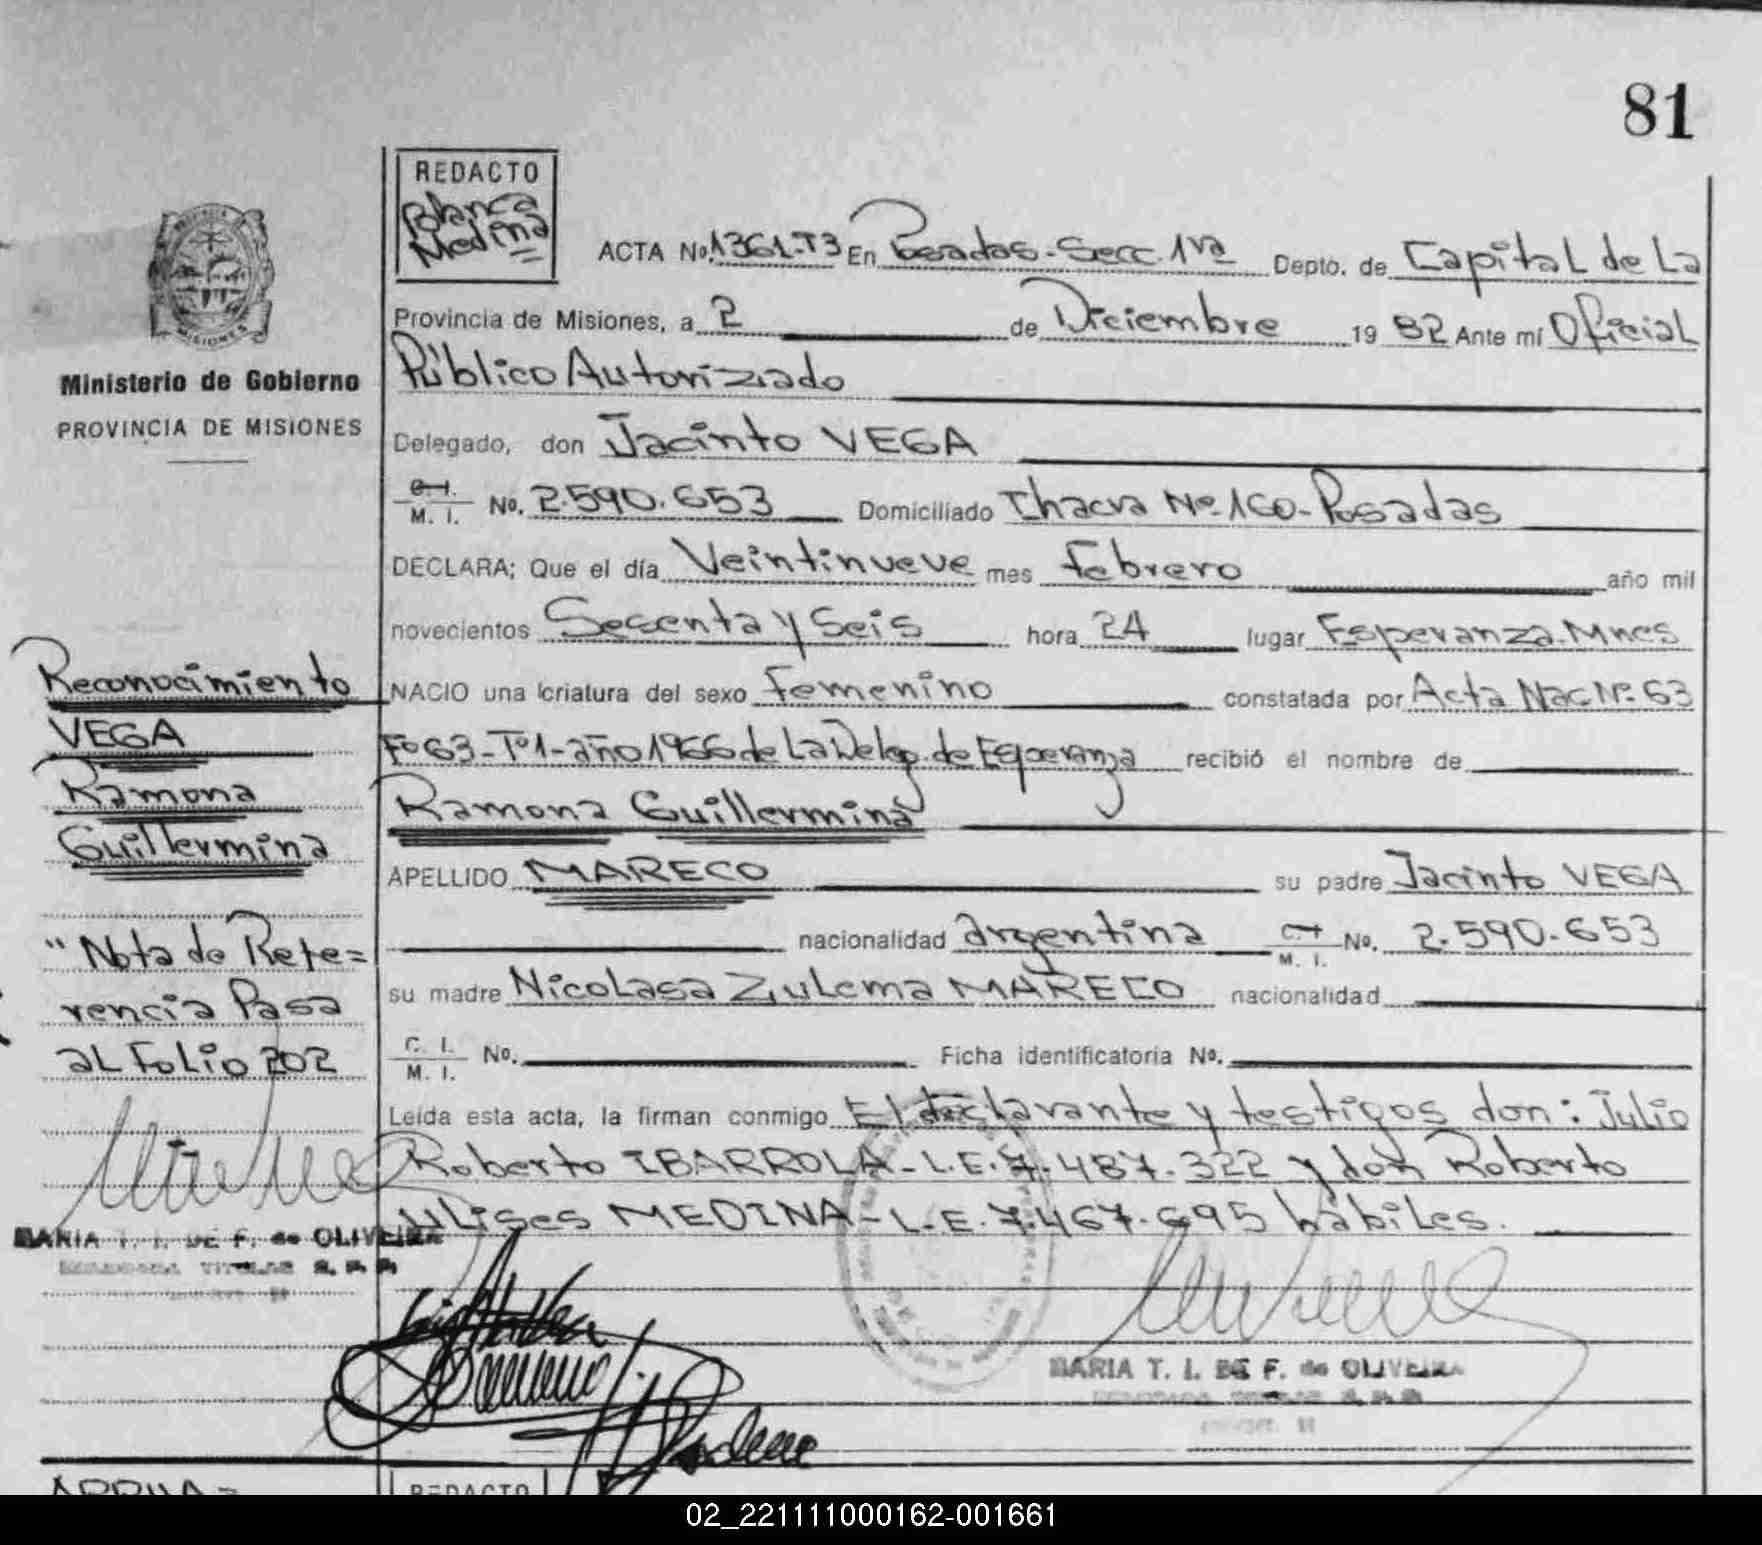 81
REDACTO
Blanca
Medina
ACTA No. 1361-T3 En Posadas-Secc. 1ra Depto. de Capital de La
Provincia de Misiones, a 2 de Diciembre 1982 Ante mí Oficial
Público Autoriziado
Delegado, don Jacinto VEGA
C.I. M. I. No. 2.590.653 Domiciliado Chacra Nº 160-Posadas
DECLARA; Que el día Veintinueve mes febrero año mil
novecientos Secenta y Seis hora 24 lugar Esperanza.Mnes
NACIO una criatura del sexo femenino constatada por Acta Nac Nº 63
Fº 63-Tº1-año 1966 de La Deleg. de Esperanza recibió el nombre de
Ramona Guillermina
APELLIDO MARECO su padre Jacinto VEGA
nacionalidad argentina C.I. M. I. No. 2.590.653
su madre Nicolasa Zulema MARECO nacionalidad
C. I. M. I. No. Ficha identificatoria No.
Leída esta acta, la firman conmigo El declarante y testigos don: Julio
Roberto IBARROLA-L.E.7.487.322 y don Roberto
Ulises MEDINA-L.E.7.467.695 hábiles.
MARIA T. I. DE F. de OLIVEIRA
MISIONES
Ministerio de Gobierno
PROVINCIA DE MISIONES
Reconocimiento
VEGA
Ramona
Guillermina
"Nota de Refe=
rencia Pasa
al Folio 202
MARIA T. I. DE F. de OLIVEIRA
REDACTO
02_221111000162-001661